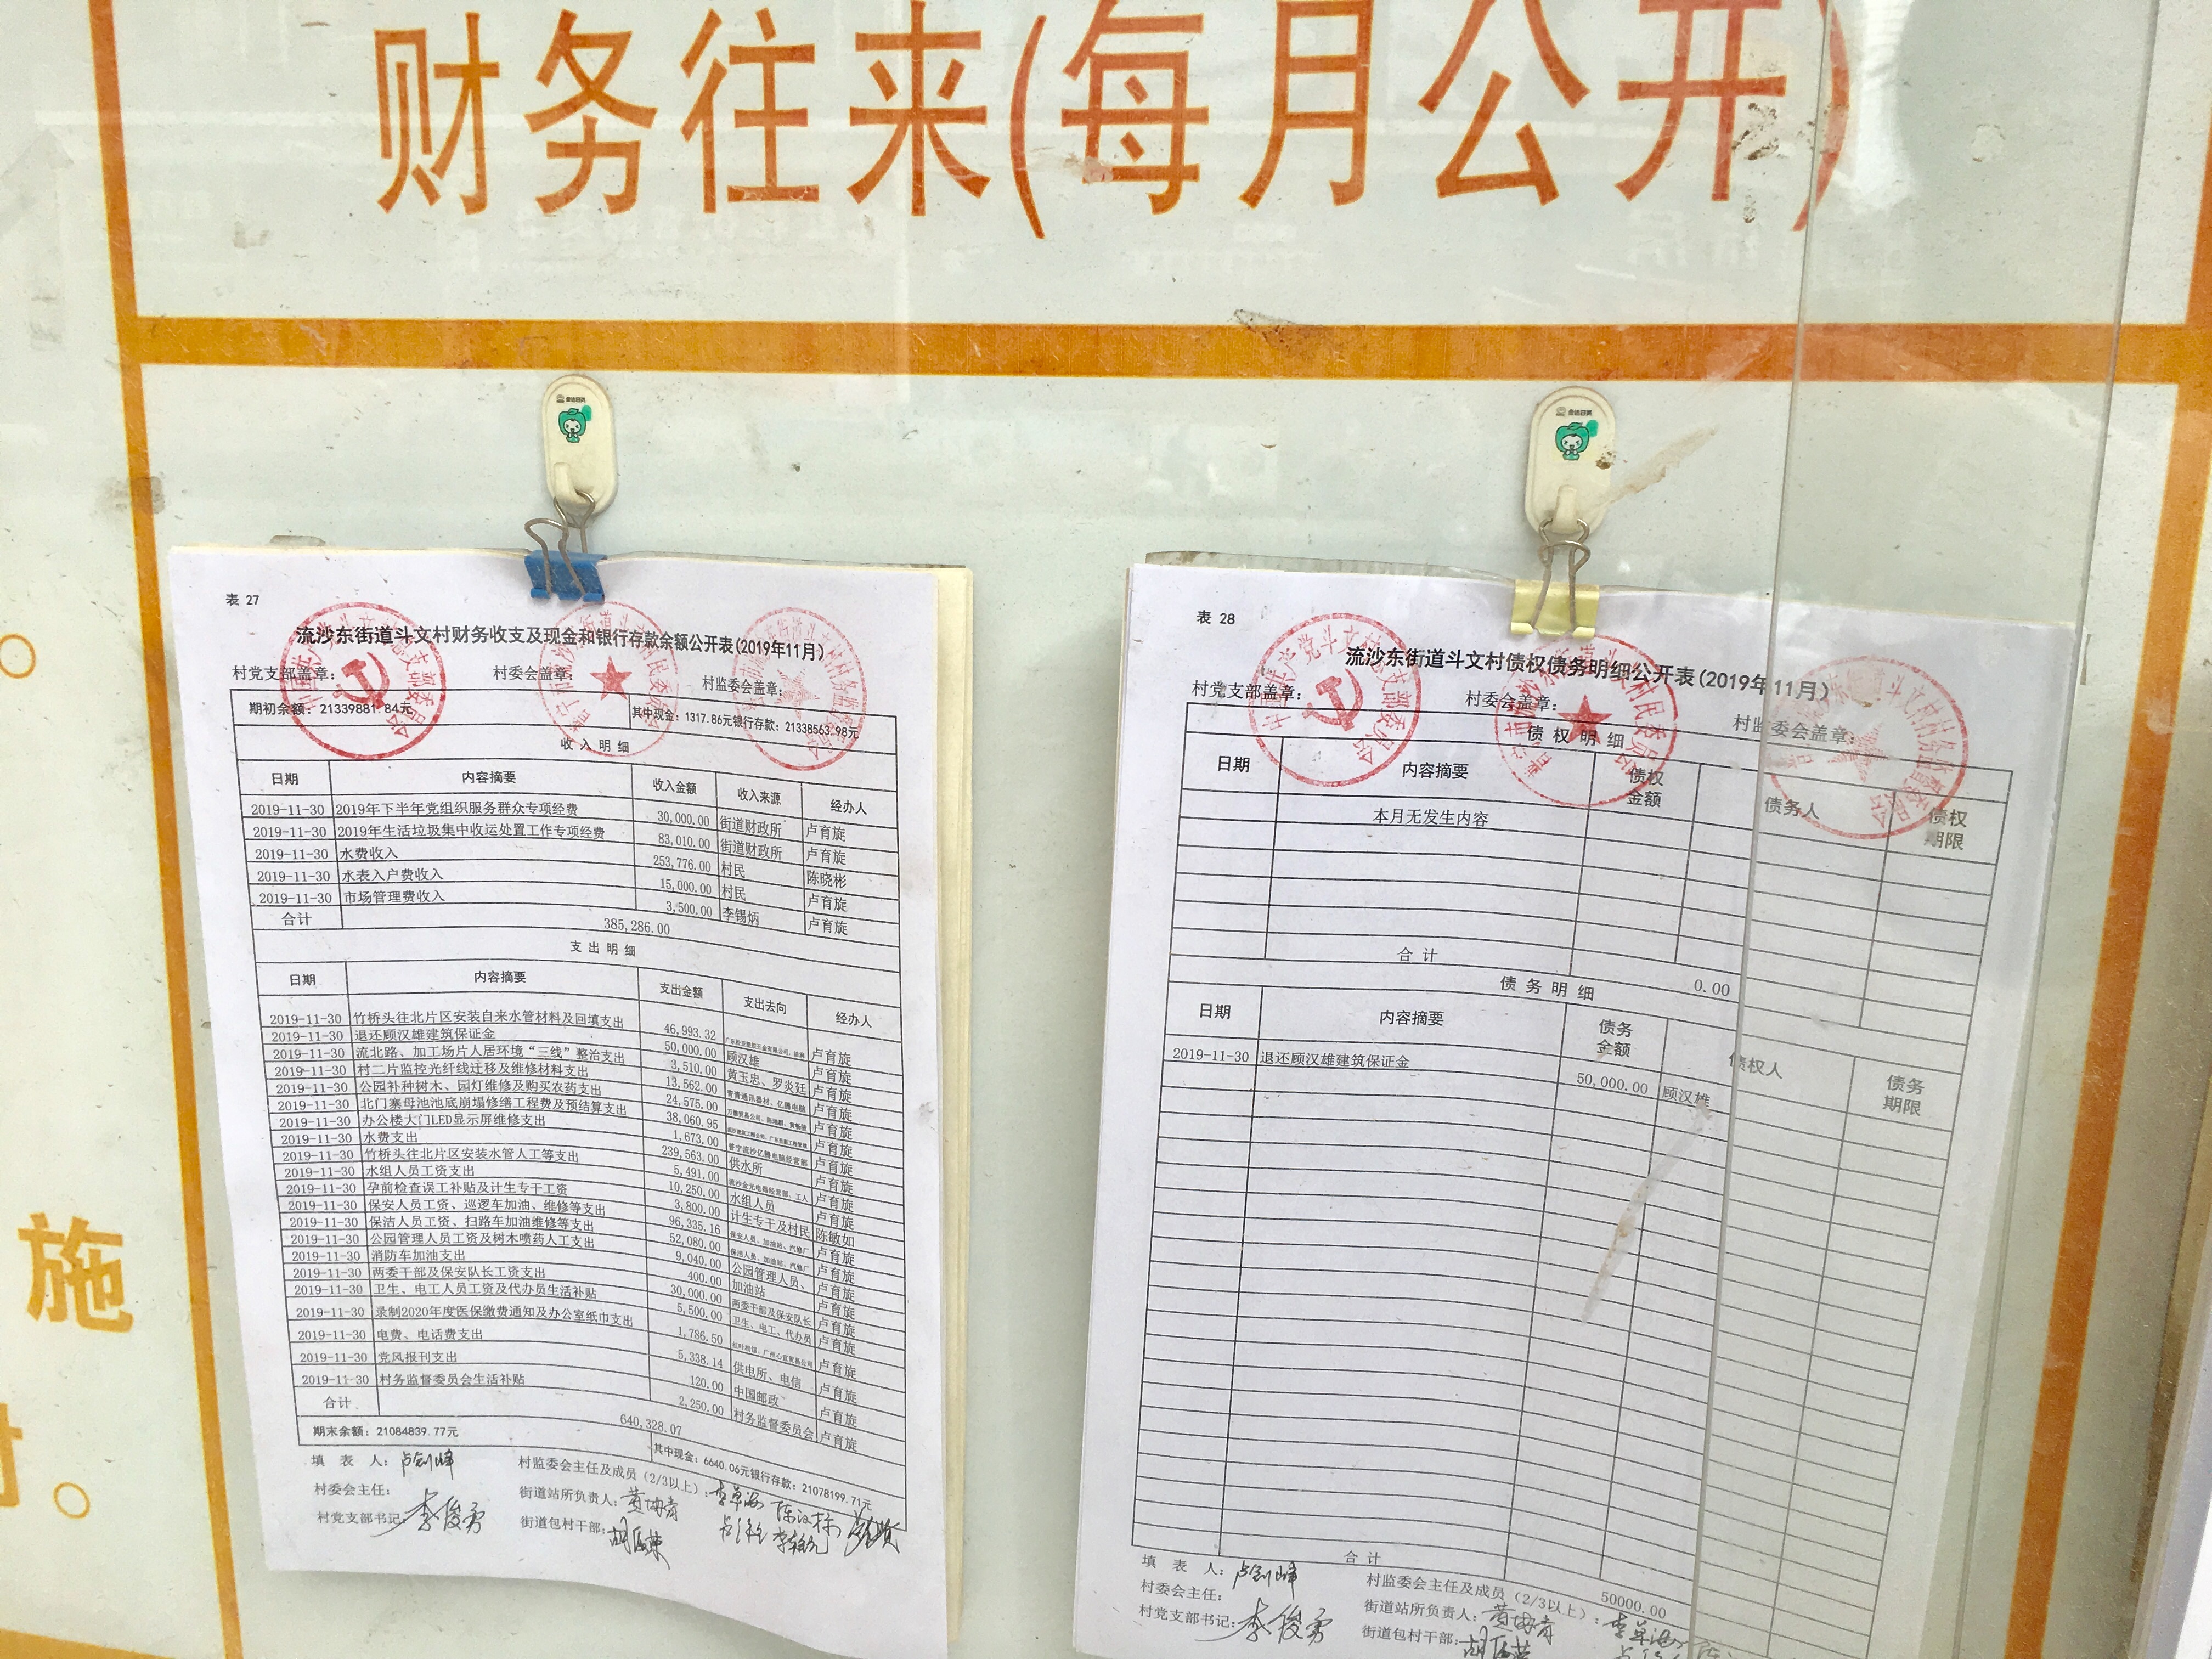 财务往来(每月公开)
施
表 27
流沙东街道斗文村财务收支及现金和银行存款余额公开表(2019年11月)
村党支部盖章: 村委会盖章: 村监委会盖章:
期初余额: 21339881.84元 其中现金: 1317.86元银行存款: 21338563.98元
收入明细
日期 内容摘要 收入金额 收入来源 经办人
2019-11-30 2019年下半年党组织服务群众专项经费 30,000.00 街道财政所 卢育旋
2019-11-30 2019年生活垃圾集中收运处置工作专项经费 83,010.00 街道财政所 卢育旋
2019-11-30 水费收入 253,776.00 村民 陈晓彬
2019-11-30 水表入户费收入 15,000.00 村民 卢育旋
2019-11-30 市场管理费收入 3,500.00 李锡炳 卢育旋
合计 385,286.00
支出明细
日期 内容摘要 支出金额 支出去向 经办人
2019-11-30 竹桥头往北片区安装自来水管材料及回填支出 46,993.32 卢育旋
2019-11-30 退还顾汉雄建筑保证金 50,000.00 顾汉雄 卢育旋
2019-11-30 流北路、加工场片人居环境“三线”整治支出 3,510.00 黄玉忠、罗炎廷 卢育旋
2019-11-30 村二片监控光纤线迁移及维修材料支出 13,562.00 青青通讯器材、亿腾电脑 卢育旋
2019-11-30 公园补种树木、园灯维修及购买农药支出 24,575.00 卢育旋
2019-11-30 北门寨母池池底崩塌修缮工程费及预结算支出 38,060.95 卢育旋
2019-11-30 办公楼大门LED显示屏维修支出 1,673.00 普宁流沙亿腾电脑经营部 卢育旋
2019-11-30 水费支出 239,563.00 供水所 卢育旋
2019-11-30 竹桥头往北片区安装水管人工等支出 5,491.00 流沙金光电脑经营部、工人 卢育旋
2019-11-30 水组人员工资支出 10,250.00 水组人员 卢育旋
2019-11-30 孕前检查误工补贴及计生专干工资 3,800.00 计生专干及村民 陈敏如
2019-11-30 保安人员工资、巡逻车加油、维修等支出 96,335.16 保安人员、加油站、汽修厂 卢育旋
2019-11-30 保洁人员工资、扫路车加油维修等支出 52,080.00 保洁人员、加油站、汽修厂 卢育旋
2019-11-30 公园管理人员工资及树木喷药人工支出 9,040.00 公园管理人员、 卢育旋
2019-11-30 消防车加油支出 400.00 加油站 卢育旋
2019-11-30 两委干部及保安队长工资支出 30,000.00 两委干部及保安队长 卢育旋
2019-11-30 卫生、电工人员工资及代办员生活补贴 5,500.00 卫生、电工、代办员 卢育旋
2019-11-30 录制2020年度医保缴费通知及办公室纸巾支出 1,786.50 卢育旋
2019-11-30 电费、电话费支出 5,338.14 供电所、电信 卢育旋
2019-11-30 党风报刊支出 120.00 中国邮政 卢育旋
2019-11-30 村务监督委员会生活补贴 2,250.00 村务监督委员会 卢育旋
合计 640,328.07
期末余额: 21084839.77元 其中现金: 6640.06元银行存款: 21078199.71元
填 表 人: 卢剑峰 村监委会主任及成员(2/3以上):
村委会主任: 街道站所负责人:
村党支部书记: 李俊勇 街道包村干部:
表 28
流沙东街道斗文村债权债务明细公开表(2019年11月)
村党支部盖章: 村委会盖章: 村监委会盖章:
债权明细
日期 内容摘要 债权金额 债务人 债权期限
本月无发生内容
合计 0.00
债务明细
日期 内容摘要 债务金额 债权人 债务期限
2019-11-30 退还顾汉雄建筑保证金 50,000.00 顾汉雄
合计 50000.00
填 表 人: 卢剑峰 村监委会主任及成员(2/3以上):
村委会主任: 街道站所负责人:
村党支部书记: 李俊勇 街道包村干部: